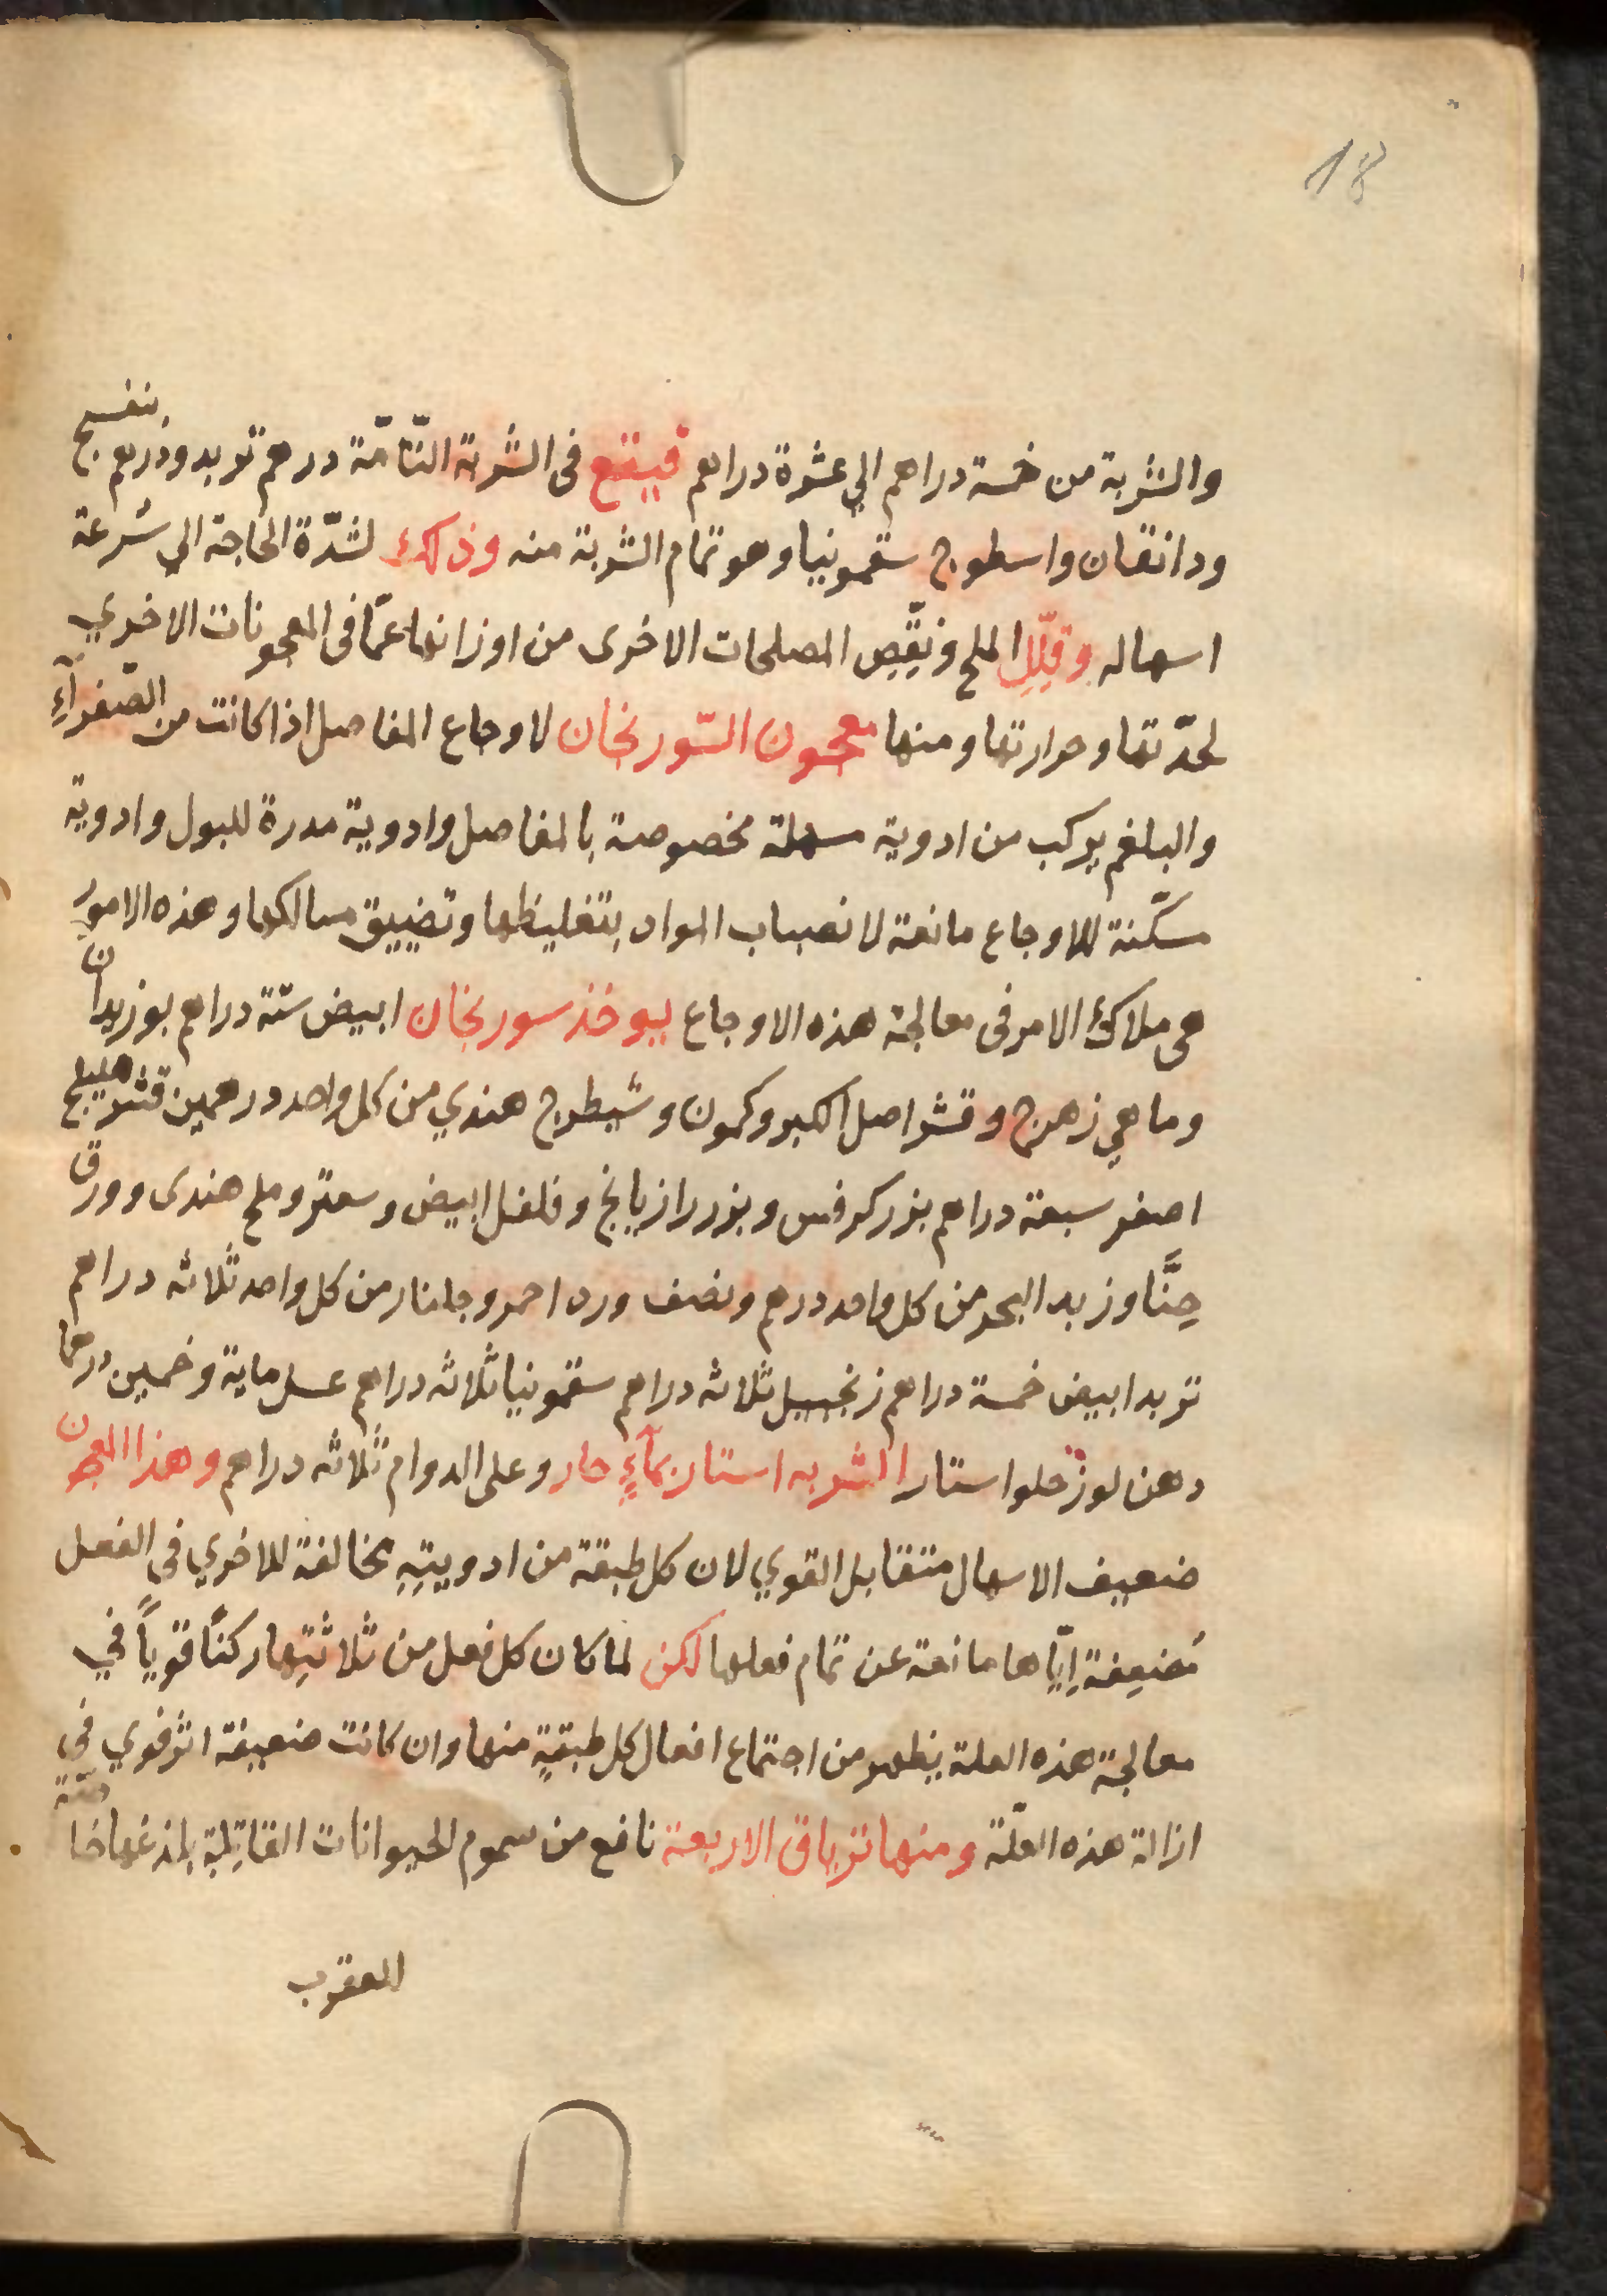 18
والشربة من خمسة دراهم الي عشرة دراهم فيقع فى الشربة التّامّة درهم تربد ودرهم بنفسج
ودانقان واسطوج سقمونيا وهو تمام الشربة منه وذلك لشدّة الحاجة الي سُرعة
اسهاله وقلِّلِ الملح ونقِّصِ المصلحات الاخرى من اوزانها عمّا فى المعجونات الاخري
لحدّتها وحرارتها ومنها معجون السّورنجان لاوجاع المفاصل اذا كانت من الصّفرآءِ
والبلغم يركب من ادوية مسهلة مخصوصة بالمفاصل وادوية مدرة للبول وادوية
مسكّنة للاوجاع مانعة لانصباب المواد بتغليظها وتضييق مسالكها وهذه الامور
هى ملاك الامر فى معالجة هذه الاوجاع يوخذ سورنجان ابيض ستة دراهم بوزيدان
وماهي زهرج وقشر اصل الكبر وكمون وشيطرج هندي من كل واحد درهمين قشر هليلج
اصفر سبعة دراهم بزر كرفس وبزر رازيانج وفلفل ابيض وسعتر وملح هندى وورق
حِنَّا وزبد البحر من كل واحد درهم ونصف ورد احمر وجلنار من كل واحد ثلاثه دراهم
تربد ابيض خمسة دراهم زنجبيل ثلاثه دراهم سقمونيا ثلاثه دراهم عسل ماية وخمسين درهما
دهن لوز حلو استار الشربه استار بمآءٍ حار وعلى الدوام ثلاثه دراهم وهذا المعجون
ضعيف الاسهال متقابل القوي لان كل طبقة من ادويتِهِ مخالفة للاخري فى الفعل
مُضعِفة اِيّاها مانعة عن تمام فعلها لكن لما كان كل فعل من ثلاثتِها ركنًا قوياً في
معالجة هذه العلة يظهر من اجتماع افعال كل طبقةٍ منها وان كانت ضعيفة اثر قوي في
ازالة هذه العلّة ومنها ترياق الاربعة نافع من سموم الحيوانات القاتِلةِ بلذغها خاصّة
العقرب